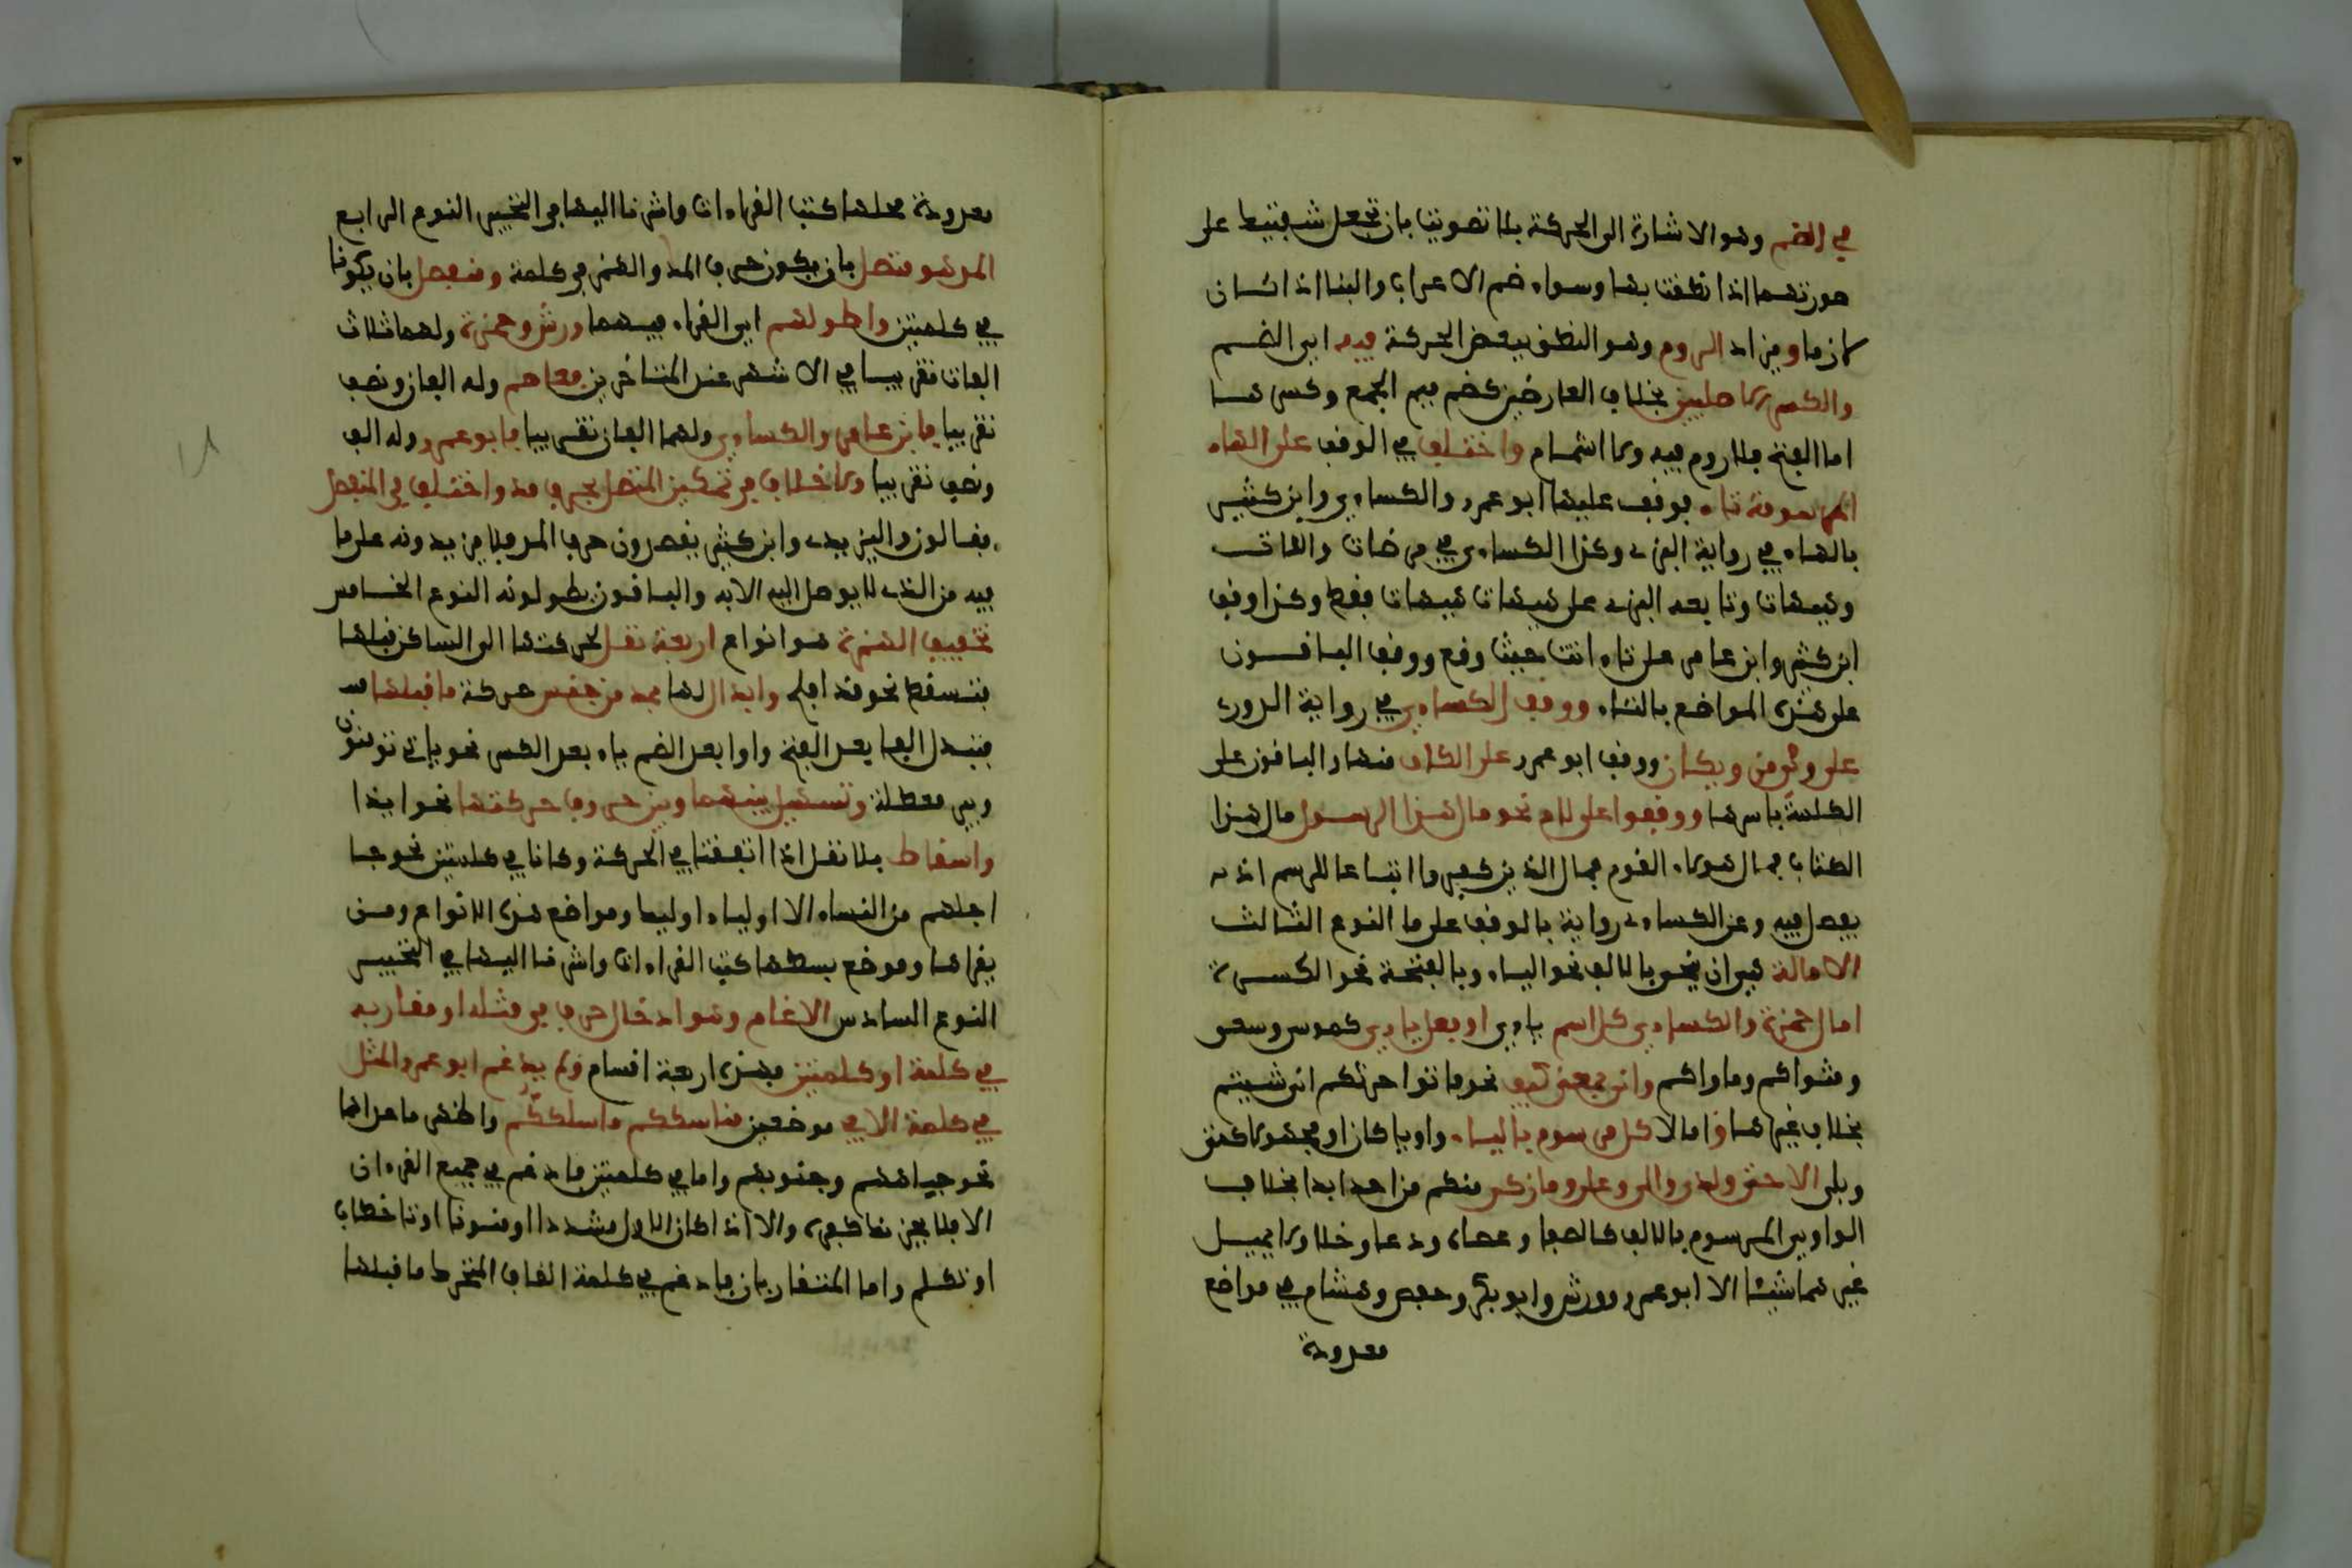 في الضم وهو الاشارة الى الحركة بلا تصويت بان تجعل شفتيك على
صورتهما اذا نطقت بها وسواء ضم الاعراب والبناء اذا كان
لازما ويزاد الروم وهو النطق ببعض الحركة فيه اي الضم
والكسر الاصليين بخلاف العارضين كضم ميم الجمع وكسرها
اما الفتح فلا روم فيه ولا اشمام واختلف في الوقف على الهاء
المرسومة تاء فوقف عليها ابو عمرو والكساءي وابن كثير
بالهاء في رواية البزي وكذا الكساءي في مرضات واللات
وهيهات وتابعه البزي على هيهات هيهات فقط وكذا وقف
ابن كثير وابن عامر على تاء ابت حيث وقع ووقف الباقون
على هذه المواضع بالتاء ووقف الكساءي في رواية الدوري
على وي من ويكان ووقف ابو عمرو على الكاف منها والباقون على
الكلمة باسرها ووقفوا على لام نحو مال هذا الرسول مال هذا
الكتاب فمال هولاء القوم فمال الذين كفروا اتباعا للرسم اذ لم
يفصل فيه وعن الكساءي رواية بالوقف على ما النوع الثالث
الامالة هي ان ينحو بالالف نحو الياء وبالفتحة نحو الكسرة
امال حمزة والكساءي كل اسم ياءي او فعل ياءي كموسى وسعى
ومثواكم وماواكم وانى بمعنى كيف نحو فاتوا حرثكم انى شيتم
بخلاف غيرها وامالا كل مرسوم بالياء واويا كان او مجهولا كمتى
وبلى الا حتى ولدى والى وعلى وما زكى منكم من احد ابدا بخلاف
الواوي المرسوم بالالف كالصفا وعصاي ودعا وخلا ولا يميل
غيرهما شيئا الا ابو عمرو وورش وابو بكر وحفص وهشام في مواضع
معدودة
معدودة محلها كتب القراءات واشرنا اليها في التحبير النوع الرابع
المد هو متصل بان يكون حرف المد والهمز في كلمة ومنفصل بان يكونا
في كلمتين واطولهم اي القراء فيهما ورش وحمزة ولهما ثلاث
الفات تقريبا في الاشهر عند المتاخرين فعاصم وله الفان ونصف
تقريبا فابن عامر والكساءي ولهما الفان تقريبا فابو عمرو وله الف
ونصف تقريبا ولا خلاف في تمكين المتصل بحرف مد واختلف في المنفصل
فقالون واليزيدي وابن كثير يقصرون حرف المد فلا يزيدونه على ما
فيه من الذي لا يوصل اليه الا به والباقون يطولونه النوع الخامس
تخفيف الهمزة هو انواع اربعة نقل لحركتها الى الساكن قبلها
فتسقط نحو قد افلح وابدال لها بمد من جنس حركة ما قبلها
فتبدل الفا بعد الفتح واوا بعد الضم ياء بعد الكسر نحو ياتي تومنون
وبير معطلة وتسهيل بينها وبين حرف حركتها نحو ايذا
واسقاط بلا نقل اذا اتفقتا في الحركة وكانا في كلمتين نحو جا
اجلهم من النساء الا اولياء اوليك ومواضع هذه الانواع ومن
يقراها وموضع بسطها كتب القراءات واشرنا اليها في التحبير
النوع السادس الادغام وهو ادخال حرف في مثله او مقاربه
في كلمة او كلمتين فهذه اربعة اقسام ولم يدغم ابو عمرو المثل
في كلمة الا في موضعين مناسككم وما سلككم واظهر ما عداهما
نحو جباههم وجنوبهم واما في كلمتين فادغم في جميع القرءان
الا فلا يحزنك كفره والا اذا كان الاول مشددا او منونا او تا خطاب
او تكلم واما المتقاربان فادغم في كلمة القاف المتحرك ما قبلها